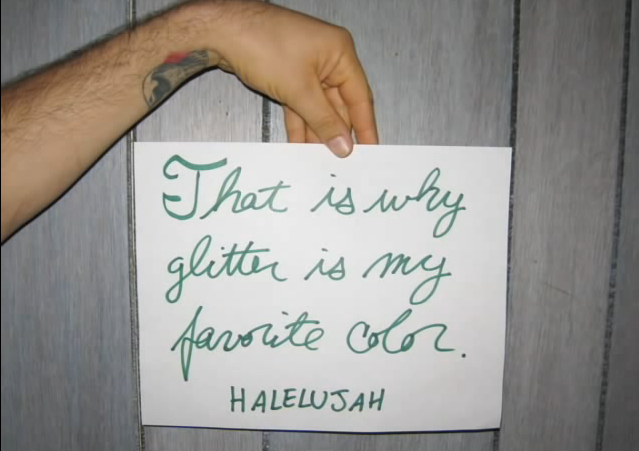 That is why
glitter is my
favorite color.
HALELUJAH